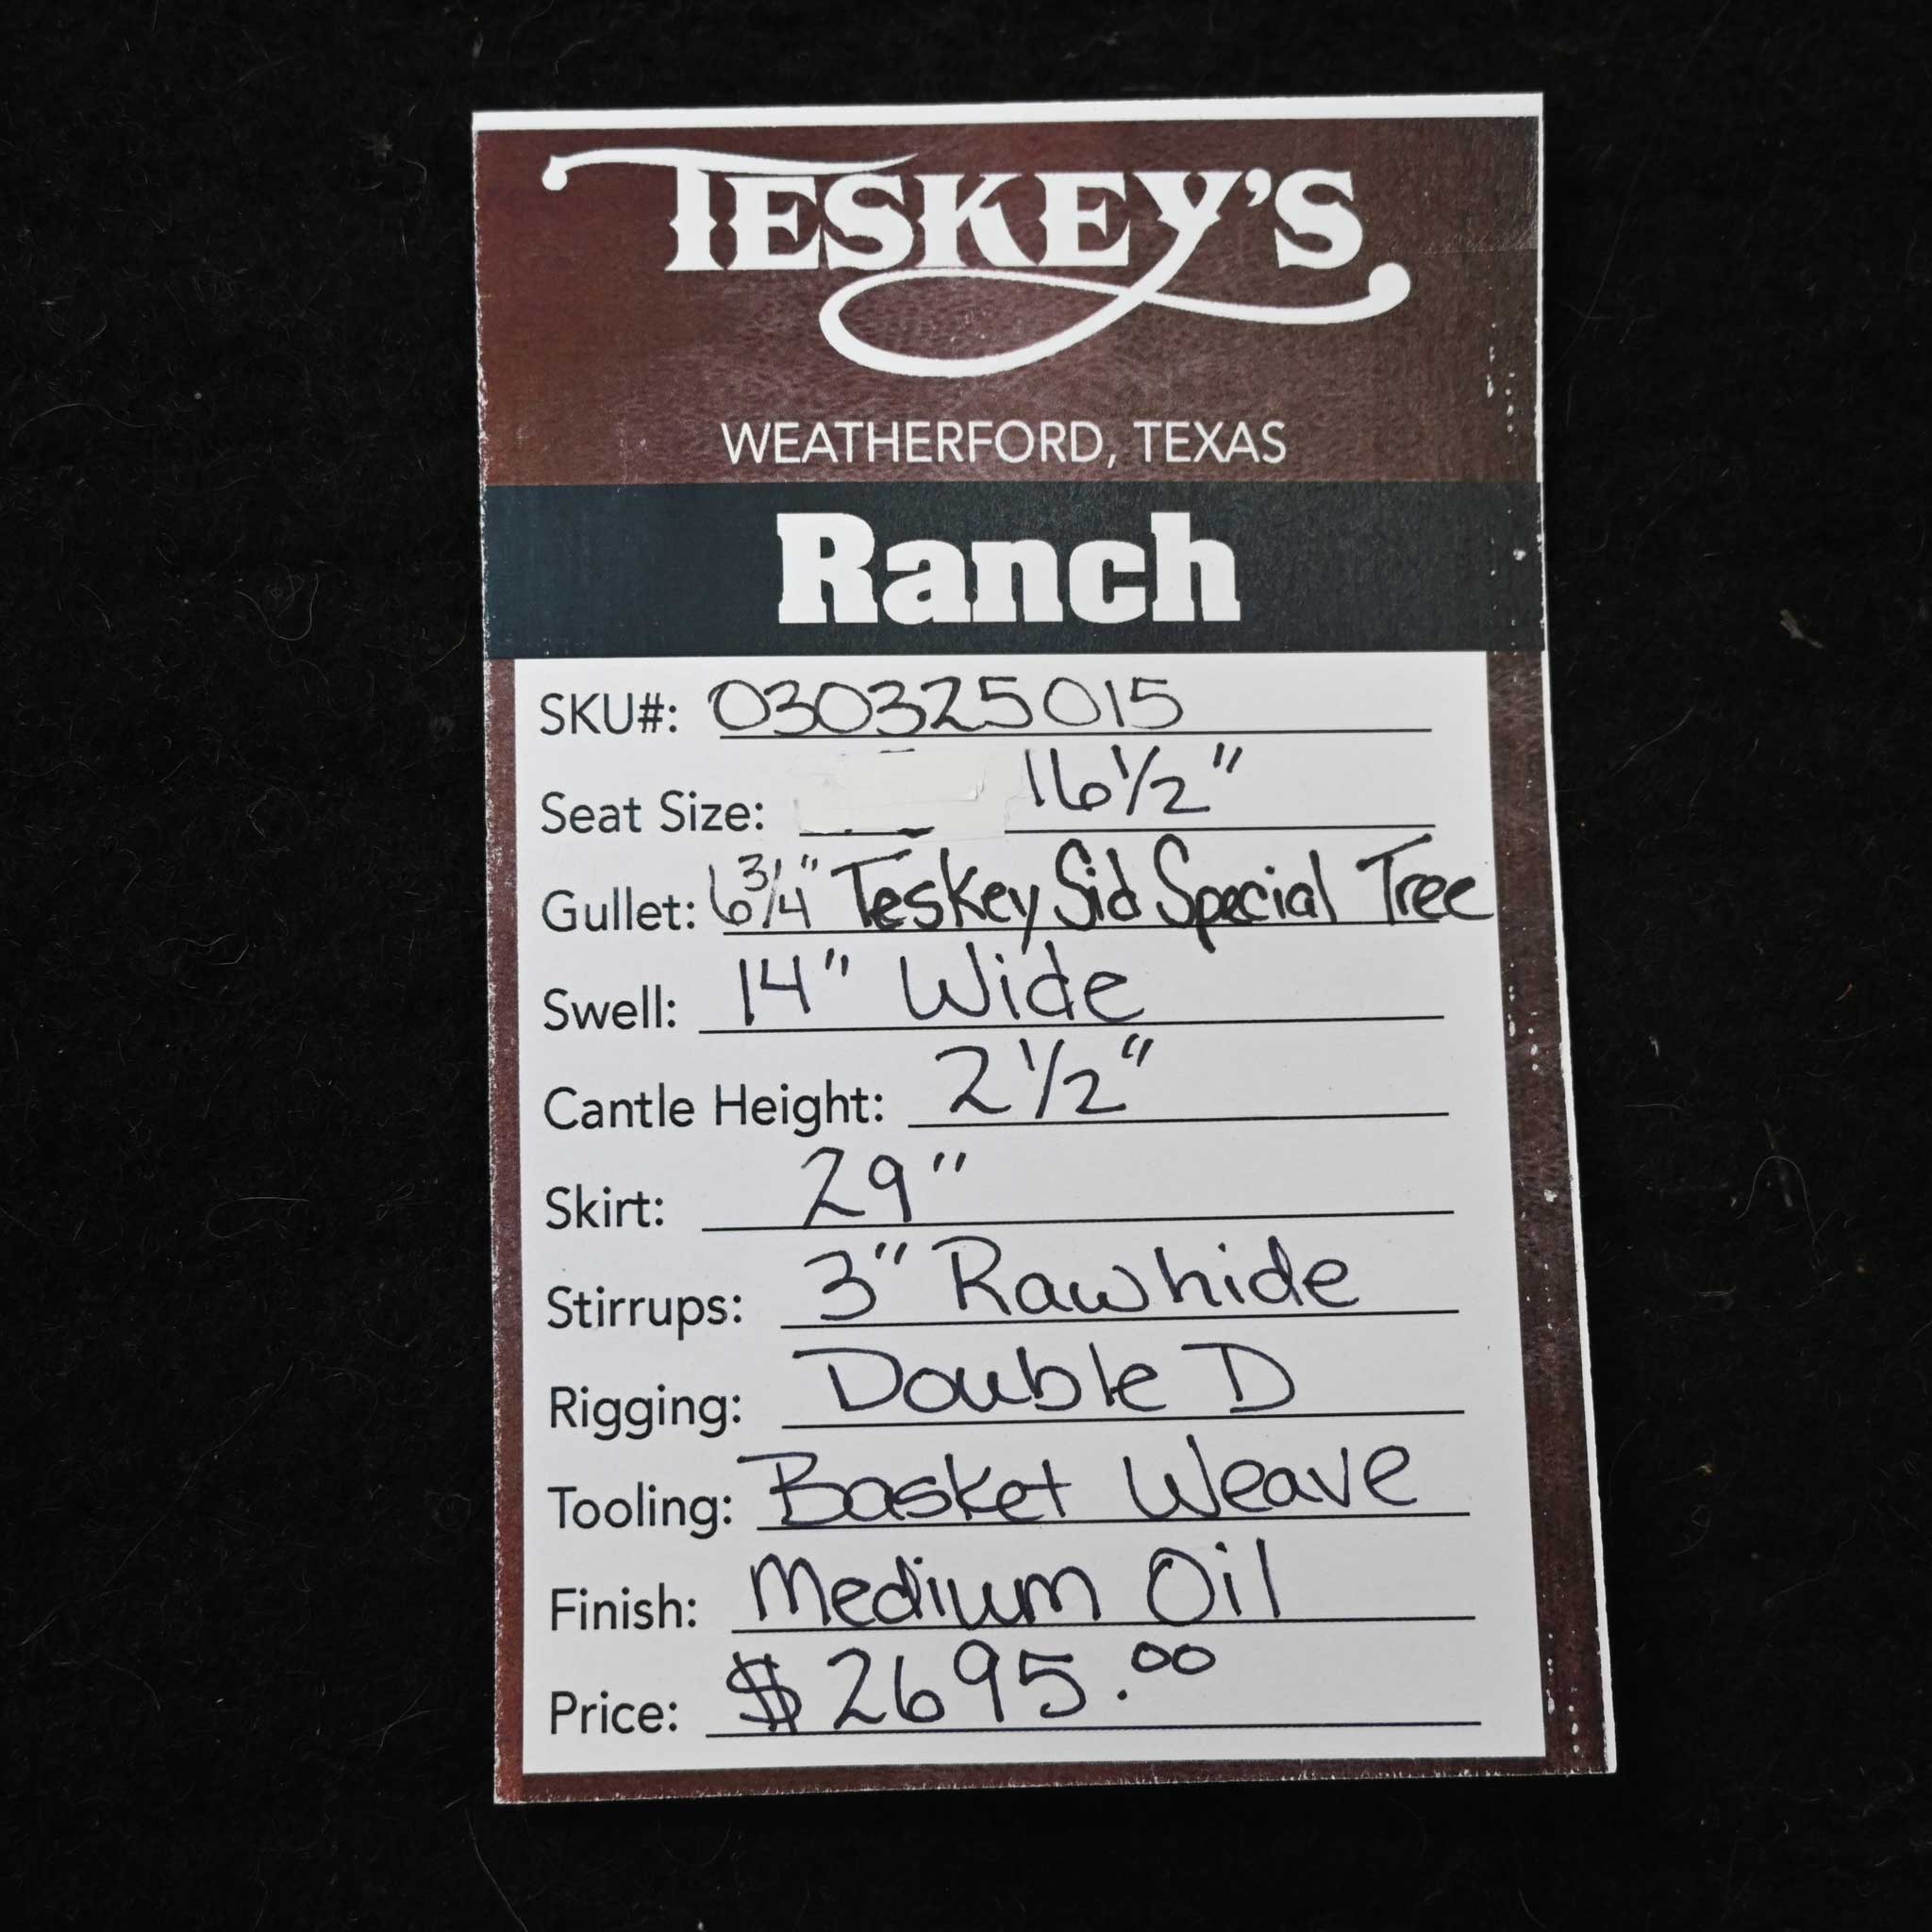 TESKEY'S
WEATHERFORD, TEXAS
Ranch
SKU#: 030325015
Seat Size: 16 1/2"
Gullet: 6 3/4" Teskey Sid Special Tree
Swell: 14" Wide
Cantle Height: 2 1/2"
Skirt: 29"
Stirrups: 3" Rawhide
Rigging: Double D
Tooling: Basket Weave
Finish: Medium Oil
Price: $2695.00